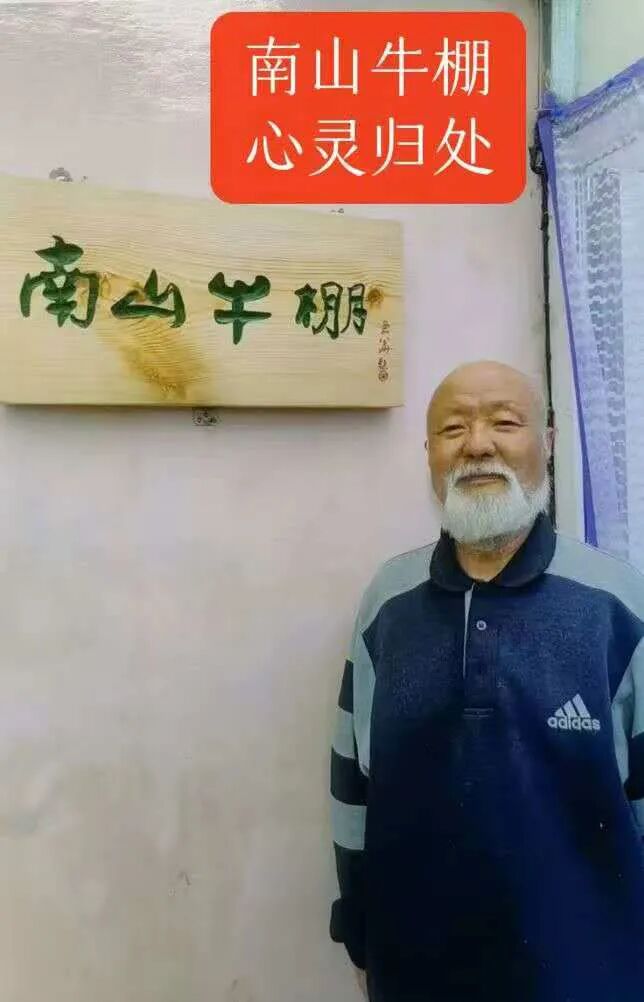 南山牛棚
心灵归处
南山牛棚
adidas